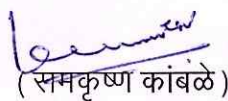 (रामकृष्ण कांबळे)